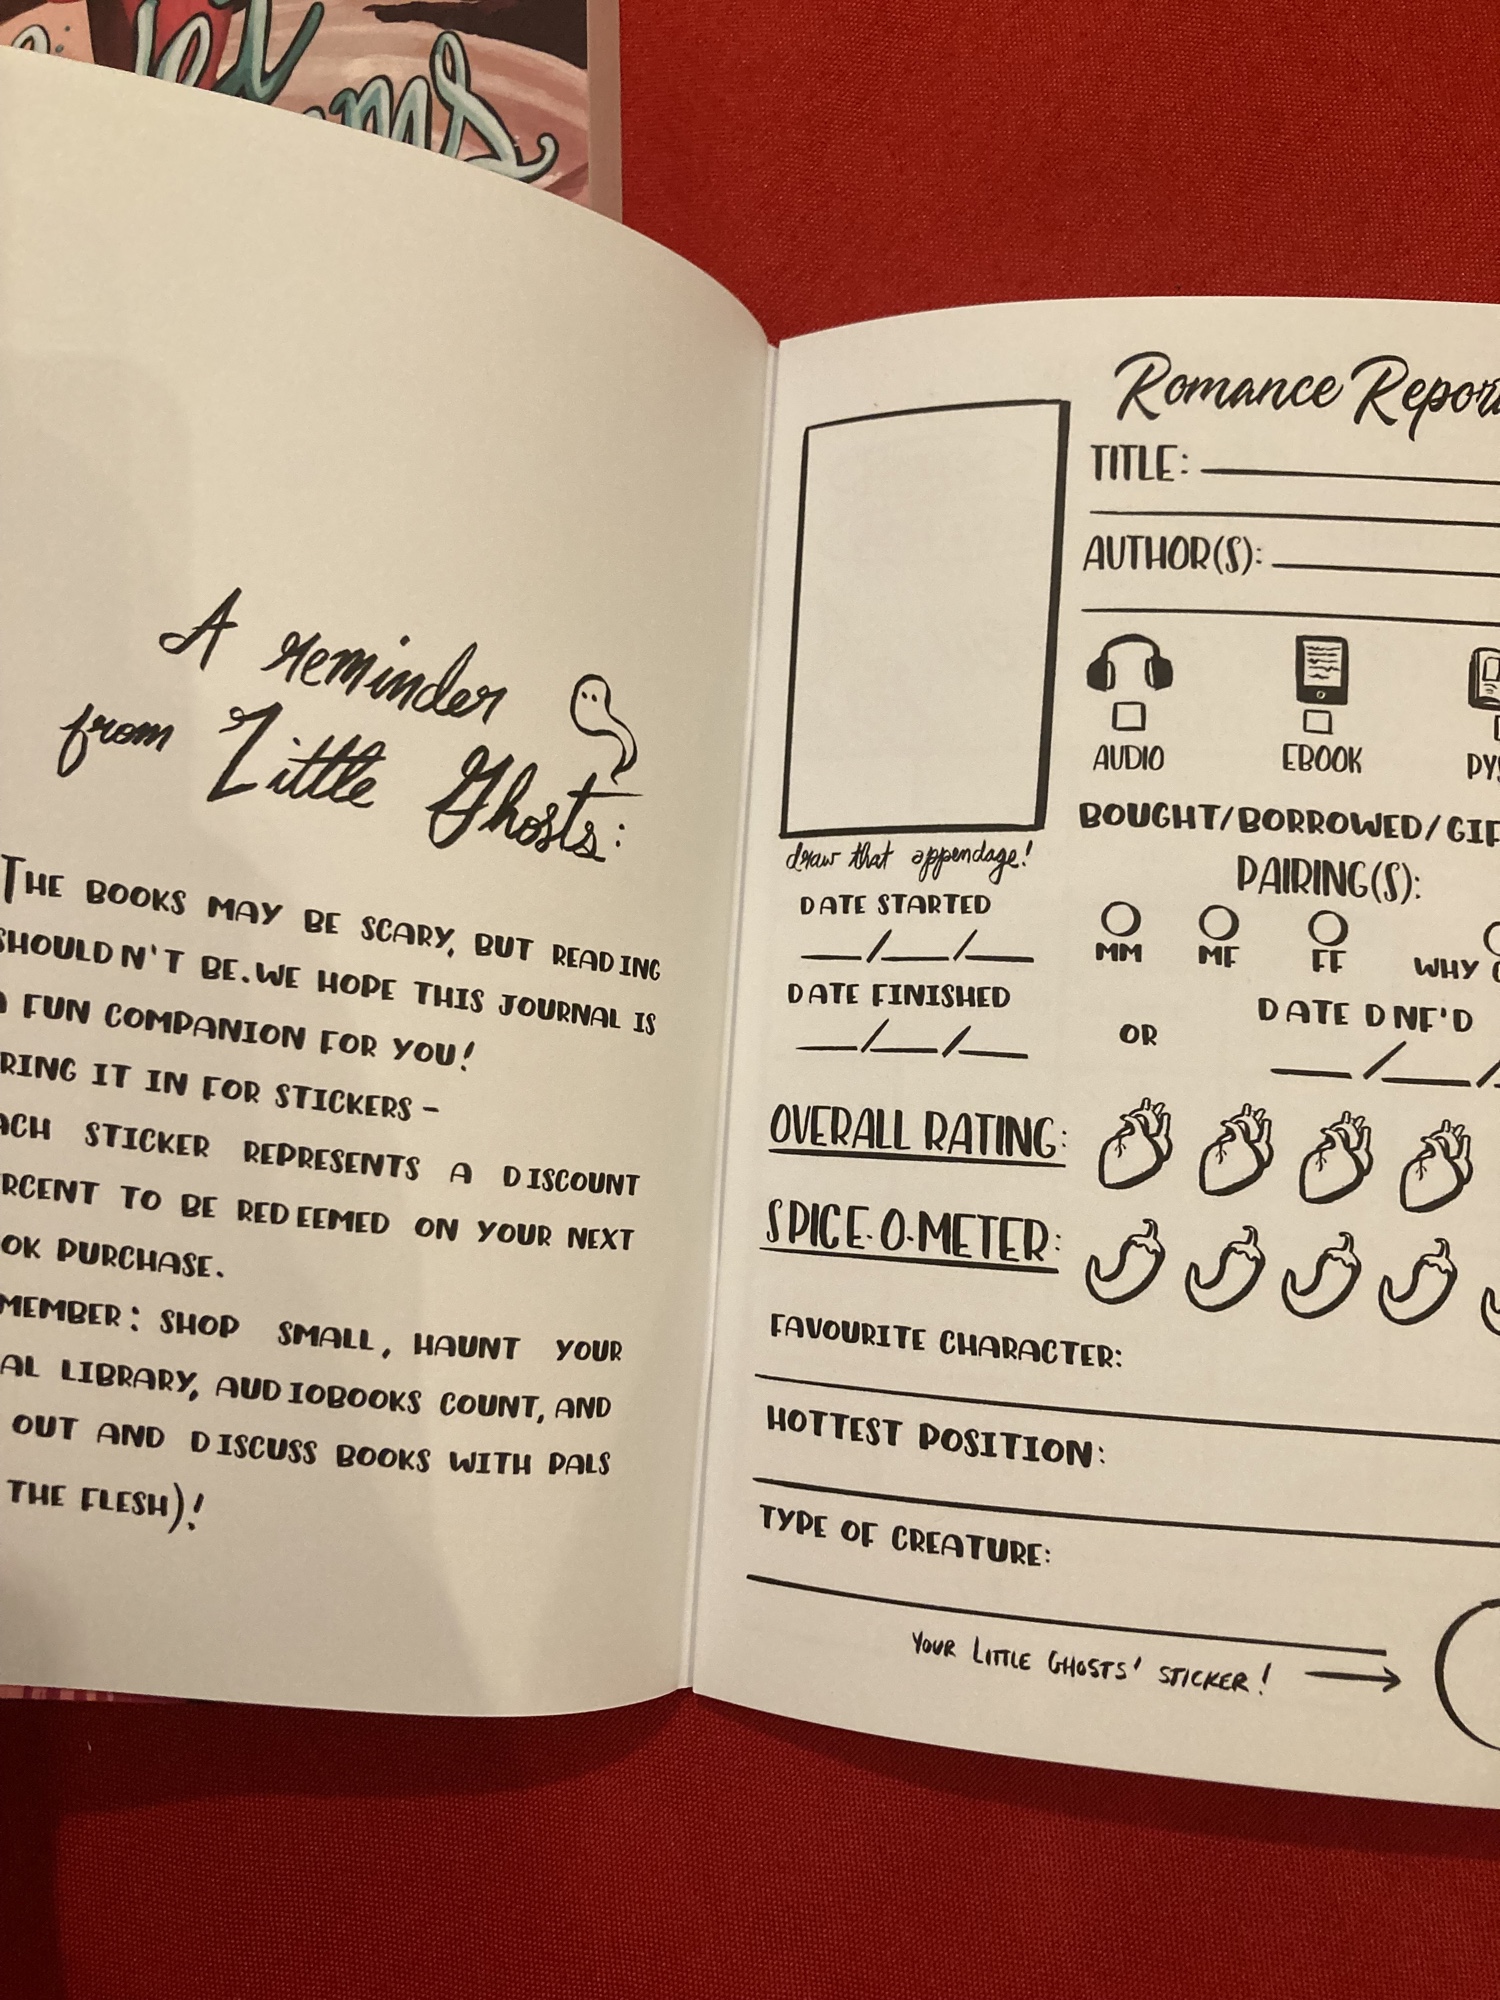 A reminder
from Little Ghosts:
THE BOOKS MAY BE SCARY, BUT READING
SHOULDN'T BE. WE HOPE THIS JOURNAL IS
A FUN COMPANION FOR YOU!
RING IT IN FOR STICKERS -
ACH STICKER REPRESENTS A DISCOUNT
RCENT TO BE REDEEMED ON YOUR NEXT
OK PURCHASE.
MEMBER: SHOP SMALL, HAUNT YOUR
AL LIBRARY, AUDIOBOOKS COUNT, AND
OUT AND DISCUSS BOOKS WITH PALS
THE FLESH)!
Romance Report
TITLE:
AUTHOR(S):
AUDIO EBOOK PYS
BOUGHT/BORROWED/GIF
PAIRING(S):
MM MF FF WHY
draw that appendage!
DATE STARTED
__/__/__
DATE FINISHED
__/__/__
OR
DATE DNF'D
__/__/
OVERALL RATING:
SPICE-O-METER:
FAVOURITE CHARACTER:
HOTTEST POSITION:
TYPE OF CREATURE:
YOUR LITTLE GHOSTS' STICKER!